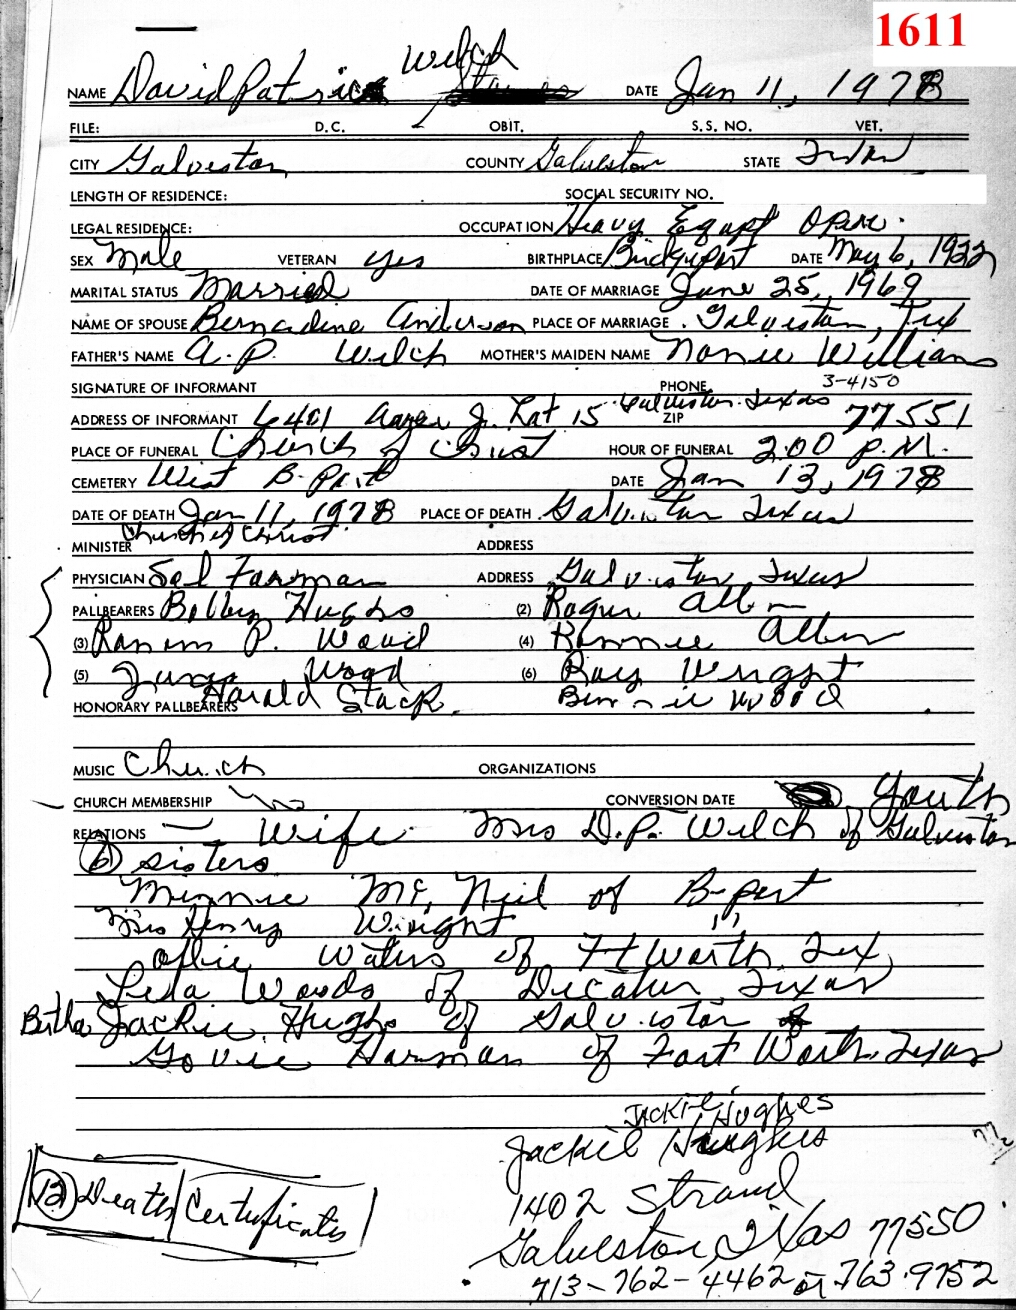 1611
NAME David Patrick Welch DATE Jan 11, 1978
FILE: D.C. OBIT. S.S. NO. VET.
CITY Galveston COUNTY Galveston STATE Texas
LENGTH OF RESIDENCE: SOCIAL SECURITY NO.
LEGAL RESIDENCE: OCCUPATION Heavy Eqapt Oper.
SEX Male VETERAN yes BIRTHPLACE Bridgeport DATE May 6, 1922
MARITAL STATUS Married DATE OF MARRIAGE June 25, 1969
NAME OF SPOUSE Bernadine Anderson PLACE OF MARRIAGE Galveston, Tex
FATHER'S NAME A. P. Welch MOTHER'S MAIDEN NAME Nonie Williams
SIGNATURE OF INFORMANT PHONE 3-4150
ADDRESS OF INFORMANT 6401 Lot 15 Galveston Texas ZIP 77551
PLACE OF FUNERAL Church of Christ HOUR OF FUNERAL 2:00 P.M.
CEMETERY West B. Port DATE Jan 13, 1978
DATE OF DEATH Jan 11, 1978 PLACE OF DEATH Galveston Texas
MINISTER Church of Christ ADDRESS
PHYSICIAN Sol Forman ADDRESS Galveston, Texas
PALLBEARERS Bobby Hughs (2) Roger Allen
(3) P. Wood (4) Ronnie Allen
(5) Wood (6) Ray Wright
HONORARY PALLBEARERS Harald Stack. Bennie Wood
MUSIC Church ORGANIZATIONS
CHURCH MEMBERSHIP CONVERSION DATE Youth
RELATIONS — Wife - Mrs D.P. Welch of Galveston
(6) sisters
Minnie Mc, Neil of B-port
Mrs Henry Wright " "
Ollie Waters of Ft Worth Tex,
Lela Woods of Decatur, Texas
Bertha Jackie Hughs of Galveston
Govie Harmon of Fort Worth, Texas
JACKIE Hughes
Jackie Hughes
(12) Death Certificates
1402 Strand
Galveston, Texas 77550
713-762-4462 or 763-9752